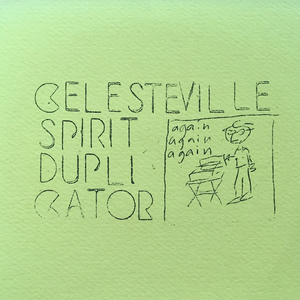 CELESTEVILLE
SPIRIT
DUPLI
CATOR
again
again
again